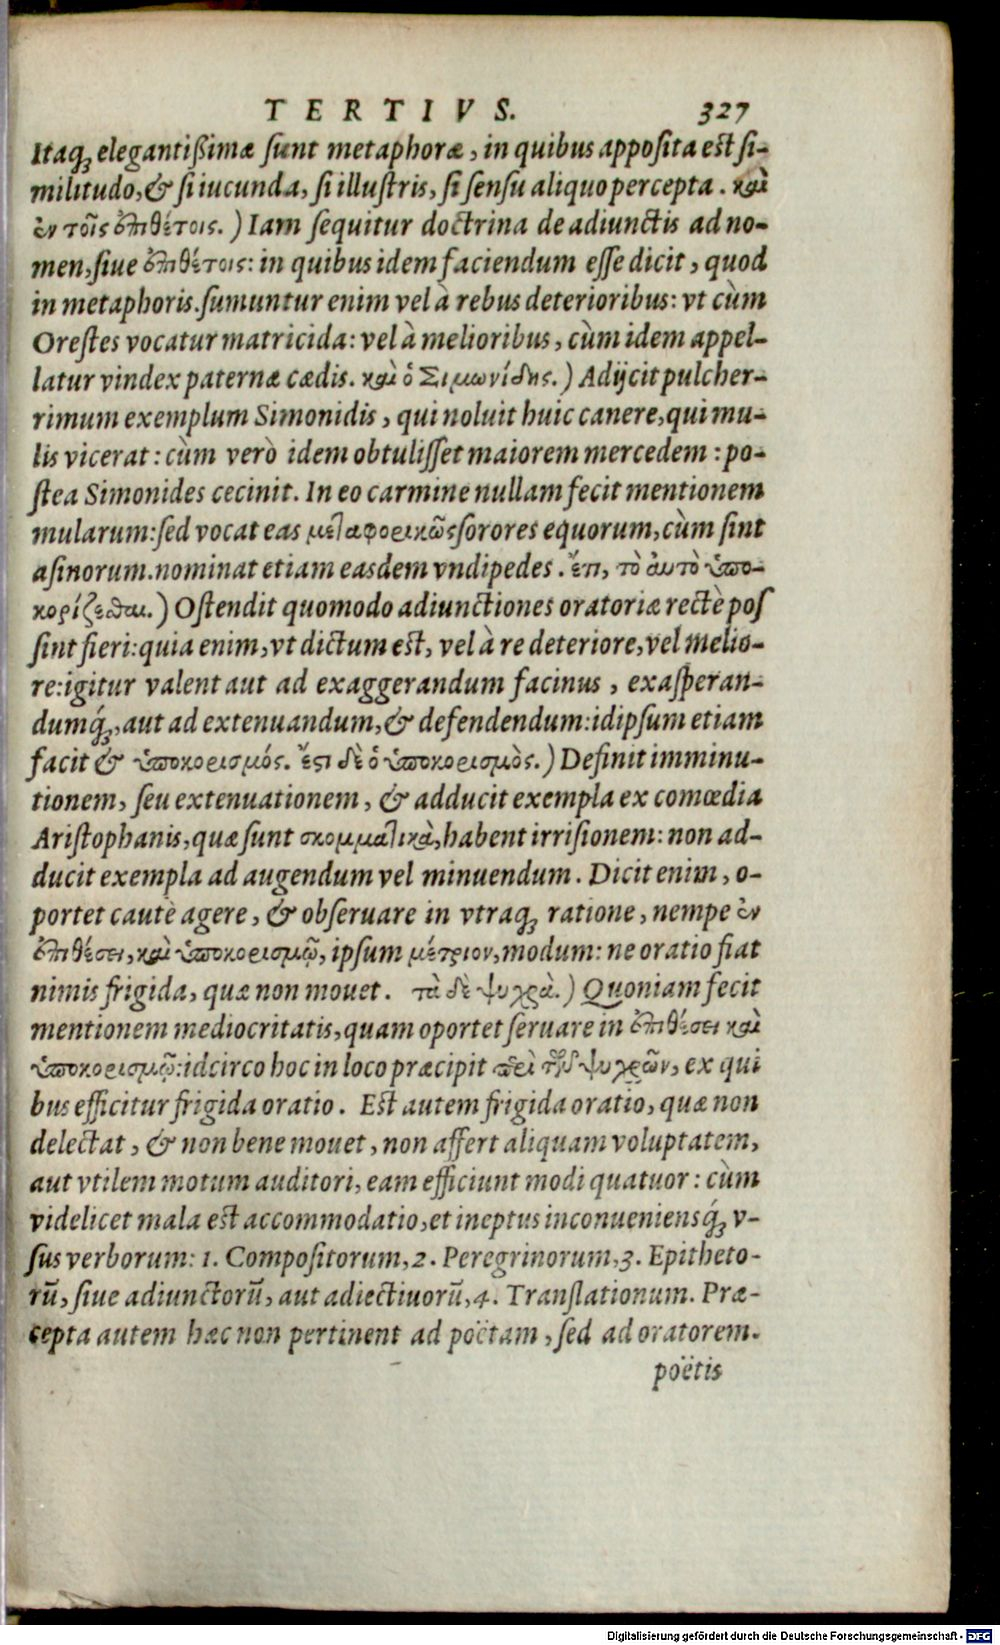 TERTIVS. 327
Itaq; elegantißimæ sunt metaphoræ, in quibus apposita est si-
militudo, & si iucunda, si illustris, si sensu aliquo percepta. καὶ
ἐν τοῖς ἐπιθέτοις.) Iam sequitur doctrina de adiunctis ad no-
men, siue ἐπιθέτοις: in quibus idem faciendum esse dicit, quod
in metaphoris. sumuntur enim vel à rebus deterioribus: vt cùm
Orestes vocatur matricida: vel à melioribus, cùm idem appel-
latur vindex paternæ cædis. καὶ ὁ Σιμωνίδης.) Adijcit pulcher-
rimum exemplum Simonidis, qui noluit huic canere, qui mu-
lis vicerat: cùm verò idem obtulisset maiorem mercedem: po-
stea Simonides cecinit. In eo carmine nullam fecit mentionem
mularum: sed vocat eas μεταφορικῶς sorores equorum, cùm sint
asinorum. nominat etiam easdem vndipedes. ἔτι, τὸ αὐτὸ ὑπο-
κορίζεσθαι.) Ostendit quomodo adiunctiones oratoriæ rectè pos
sint fieri: quia enim, vt dictum est, vel à re deteriore, vel melio-
re: igitur valent aut ad exaggerandum facinus, exasperan-
dumq́;, aut ad extenuandum, & defendendum: idipsum etiam
facit & ὑποκορισμός. ἔστι δὲ ὁ ὑποκορισμὸς.) Definit imminu-
tionem, seu extenuationem, & adducit exempla ex comœdia
Aristophanis, quæ sunt σκομματικὰ, habent irrisionem: non ad-
ducit exempla ad augendum vel minuendum. Dicit enim, o-
portet cautè agere, & obseruare in vtraq; ratione, nempe ἐν
ἐπιθέσει, καὶ ὑποκορισμῷ, ipsum μέτριον, modum: ne oratio fiat
nimis frigida, quæ non mouet. τὰ δὲ ψυχρὰ.) Quoniam fecit
mentionem mediocritatis, quam oportet seruare in ἐπιθέσει καὶ
ὑποκορισμῷ: idcirco hoc in loco præcipit περὶ τῶν ψυχρῶν, ex qui
bus efficitur frigida oratio. Est autem frigida oratio, quæ non
delectat, & non bene mouet, non affert aliquam voluptatem,
aut vtilem motum auditori, eam efficiunt modi quatuor: cùm
videlicet mala est accommodatio, et ineptus inconueniensq́; v-
sus verborum: 1. Compositorum, 2. Peregrinorum, 3. Epitheto-
rũ, siue adiunctorũ, aut adiectiuorũ, 4. Translationum. Præ-
cepta autem hæc non pertinent ad poëtam, sed ad oratorem.
poëtis
Digitalisierung gefördert durch die Deutsche Forschungsgemeinschaft - DFG